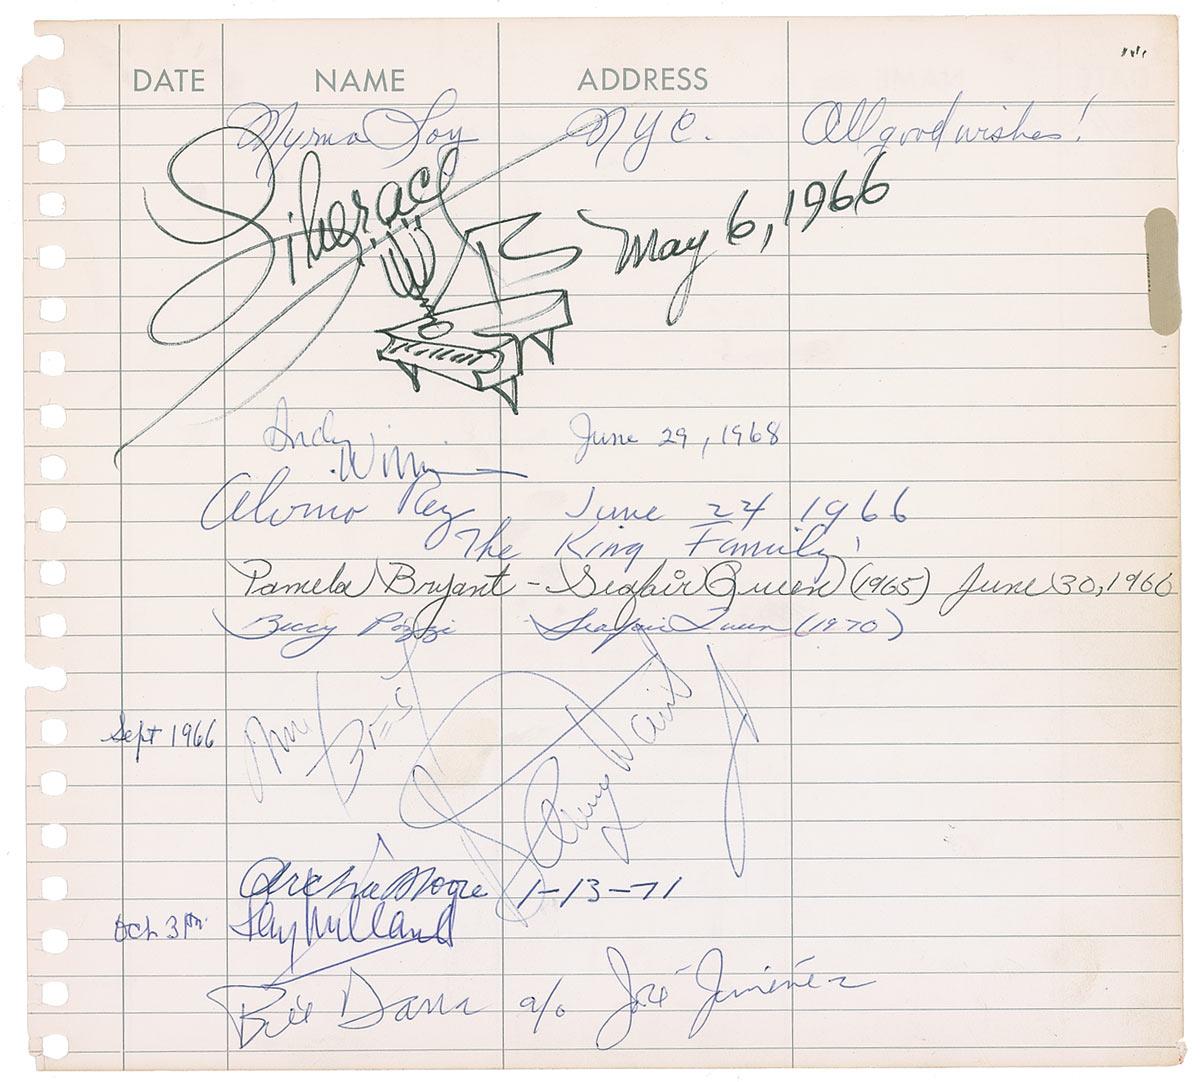 DATE NAME ADDRESS
Myrna Loy NYC. All good wishes!
Liberace May 6, 1966
Andy Williams June 29, 1968
Alvino Rey June 24 1966
The King Family!
Pamela Bryant - Seafair Queen (1965) June 30, 1966
Pozzi Seafair Queen (1970)
Sept 1966 Best Johnny Davis Jr
Archie Moore 1-13-71
Oct 3 Ray Milland
Bill Dana a/o José Jiménez